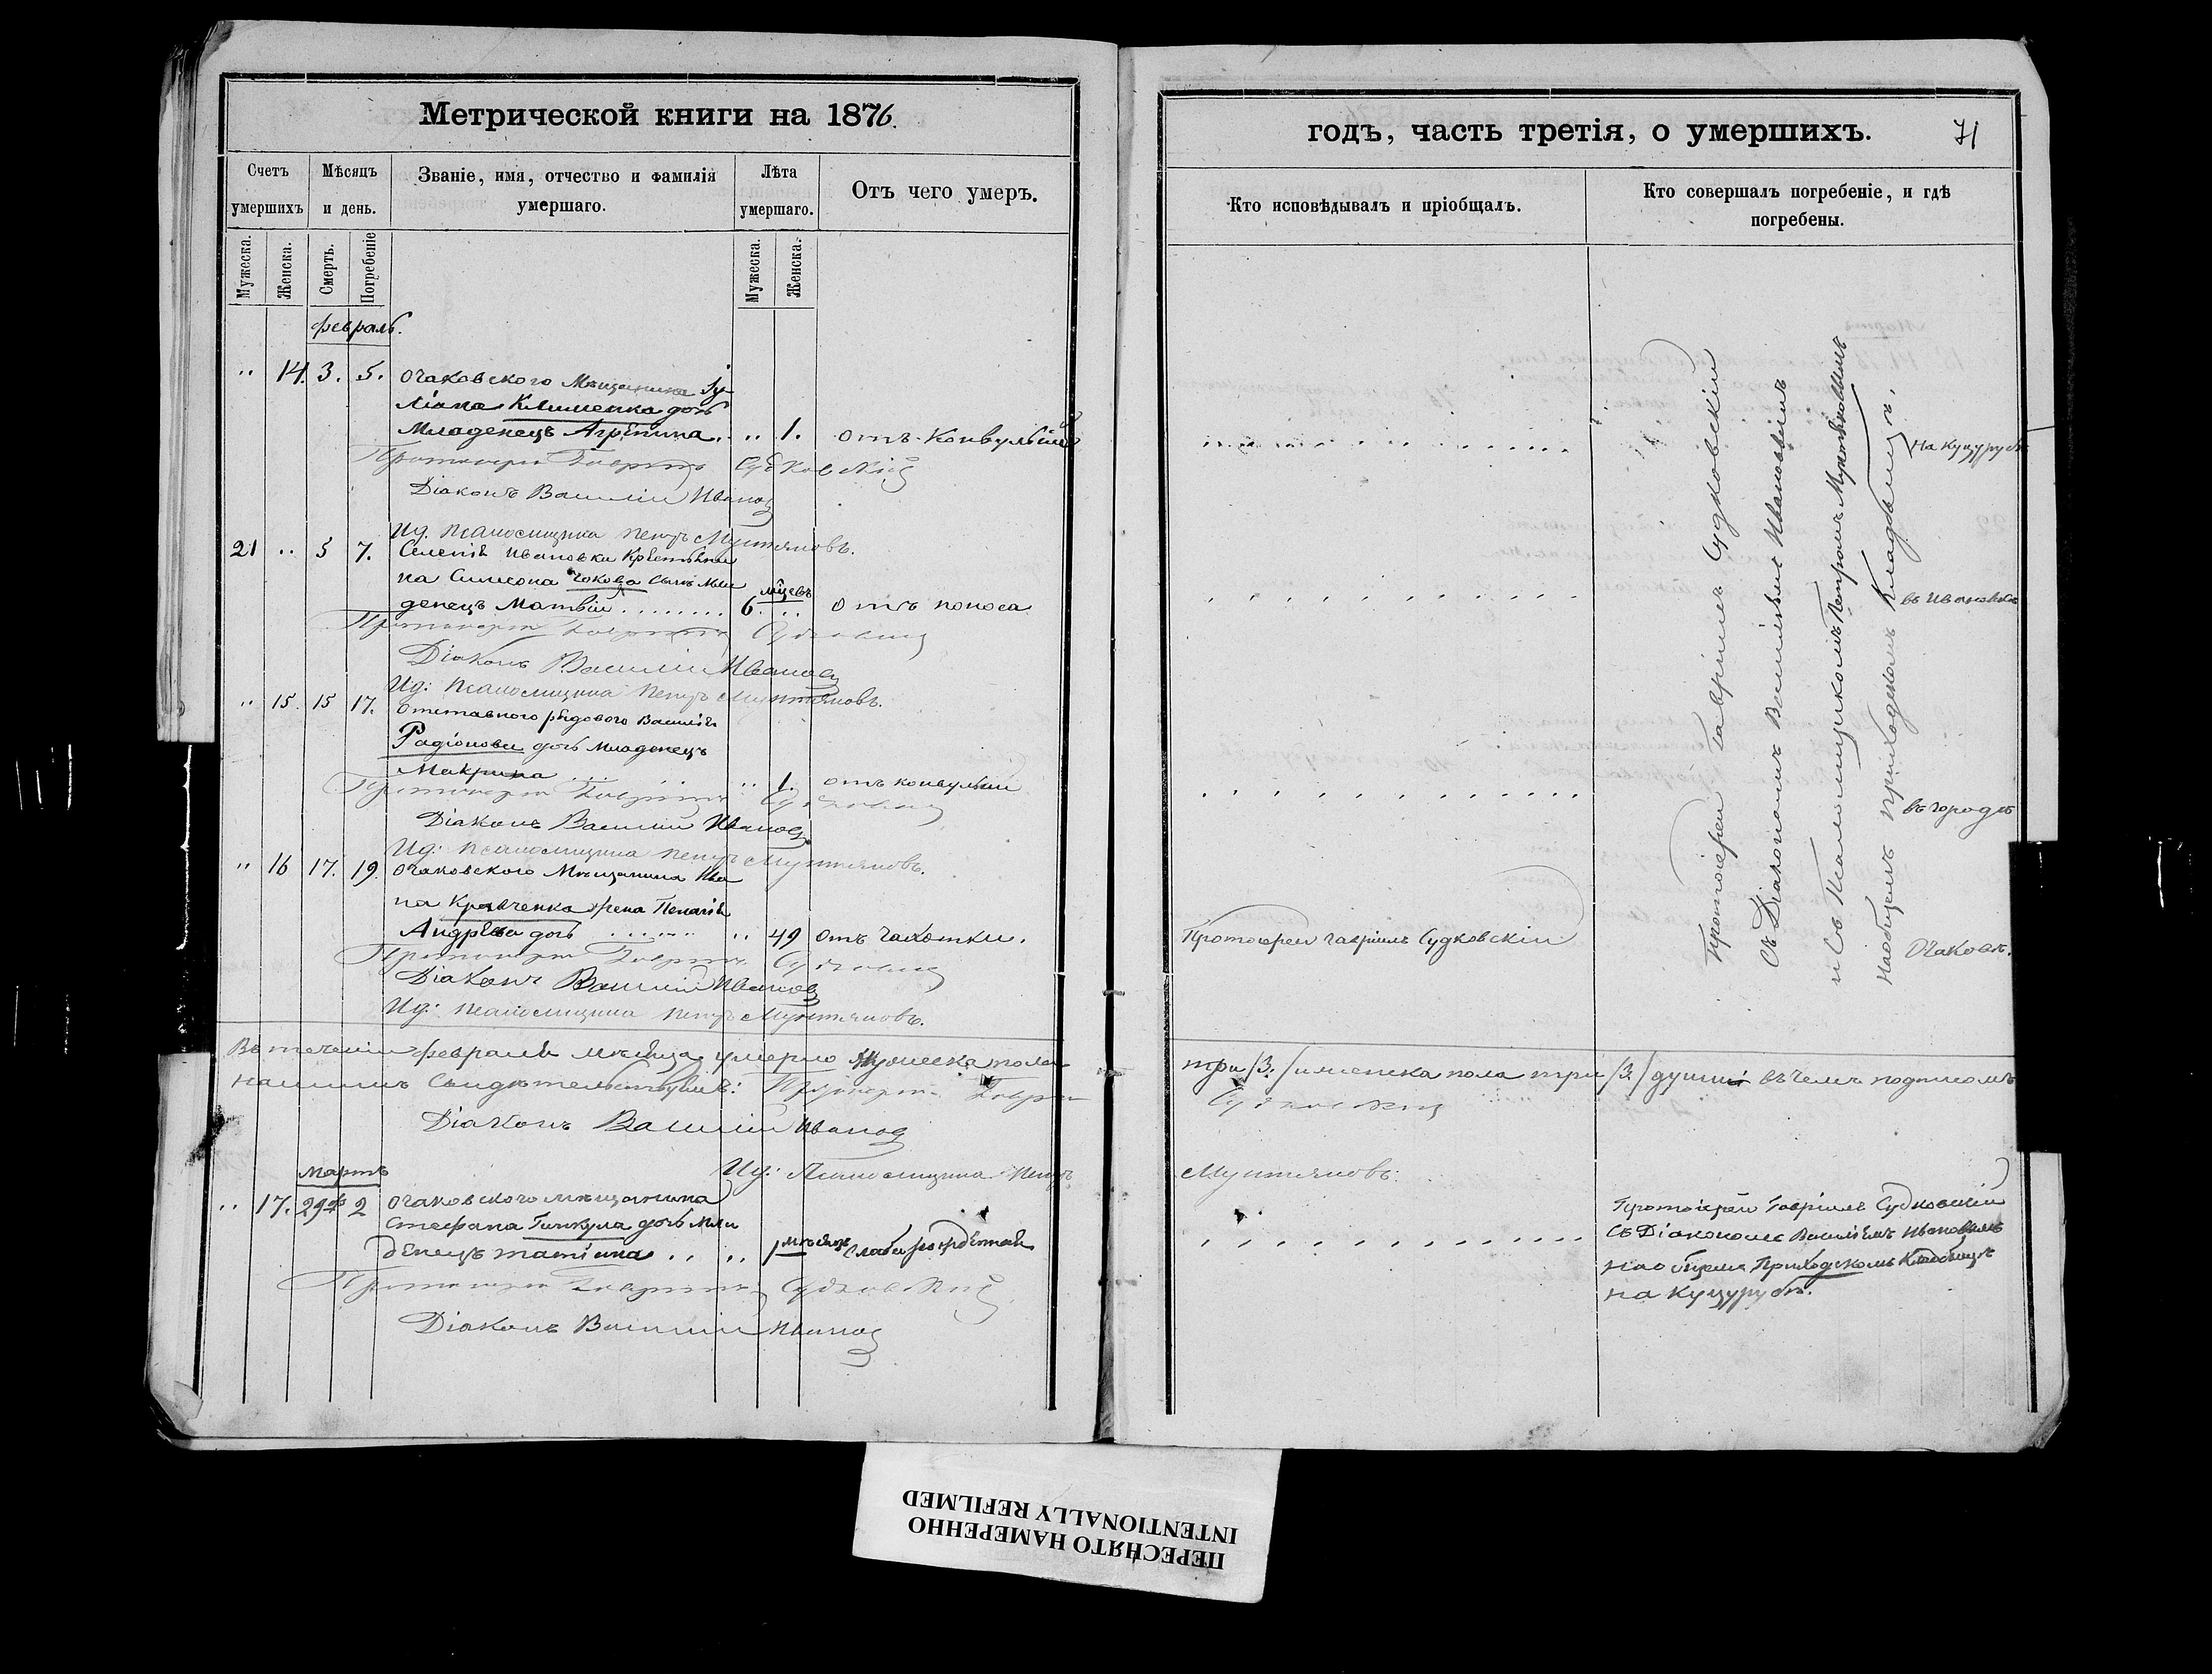 Метрической книги на 1876.
Счетъ умершихъ
Мѣсяцъ и день.
Званіе, имя, отчество и фамилія умершаго.
Лѣта умершаго.
Отъ чего умеръ.
Мужеска.
Женска.
Смерть.
Погребеніе
Мужеска.
Женска.
февраль.
" 14. 3. 5. Очаковскаго Мѣщанина
Клименка дочь
Младенецъ Агрѣпина. " 1. отъ конвульсій
Протоіерей Гавріилъ Судковскій
Діаконъ Василій Иванов
Ид. псаломщика Петръ Мунтяновъ.
21 " 5 7. Селенія Ивановки Крестьяни
на Симеона Чокова сынъ Мла
денецъ Матвѣй ........ 6. мцевъ ... отъ поноса
Протоіерей Гавріилъ Судковскій
Діаконъ Василій Иванов
Ид: псаломщика Петръ Мунтяновъ.
" 15. 15 17. Отставного рядового Василія
Радіонова дочь Младенецъ
Макрина ... " 1. отъ конвульсій
Протоіерей Гавріилъ Судковскій
Діаконъ Василій Иванов
Ид: псаломщика Петръ Мунтяновъ.
" 16 17. 19. Очаковскаго Мѣщанина Ива
на Кравченка жена Пелагія
Андрѣева дочь ...... " 49 отъ чахотки.
Протоіерей Гавріилъ Судковскій
Діаконъ Василій Иванов
Ид: псаломщика Петръ Мунтяновъ.
Въ теченіи февраля мѣсяца умерло Мужеска пола
нашимъ свидѣтельствуемъ: Протоіерей Гавріилъ
Діаконъ Василій Иванов
Ид: Псаломщика Петръ
мартъ
" 17. 29 2 Очаковскаго мѣщанина
Стефана дочь Мла
денецъ Татіана .. " 1 мѣсяцъ
Протоіерей Гавріилъ Судковскій
Діаконъ Василій Иванов
годъ, часть третія, о умершихъ.
71
Кто исповѣдывалъ и пріобщалъ.
Кто совершалъ погребеніе, и гдѣ погребены.
Протоіерей Гавріилъ Судковскій
съ Діакономъ Василіемъ Ивановымъ
и съ Псаломщикомъ Петромъ Мунтяновымъ
на общемъ приходскомъ кладбищѣ,
на Куцурубѣ
въ Ивановкѣ
въ городѣ
Очаковѣ.
Протоіерей Гавріилъ Судковскій
три /3:/ и женска пола три /3/ души въ чемъ подписомъ
Судковскій
Мунтяновъ:
Протоіерей Гавріилъ Судковскій
съ Діакономъ Василіемъ Ивановымъ
на общемъ Приходскомъ Кладбищѣ
на Куцурубѣ.
ПЕРЕСНЯТО НАМЕРЕННО
INTENTIONALLY REFILMED